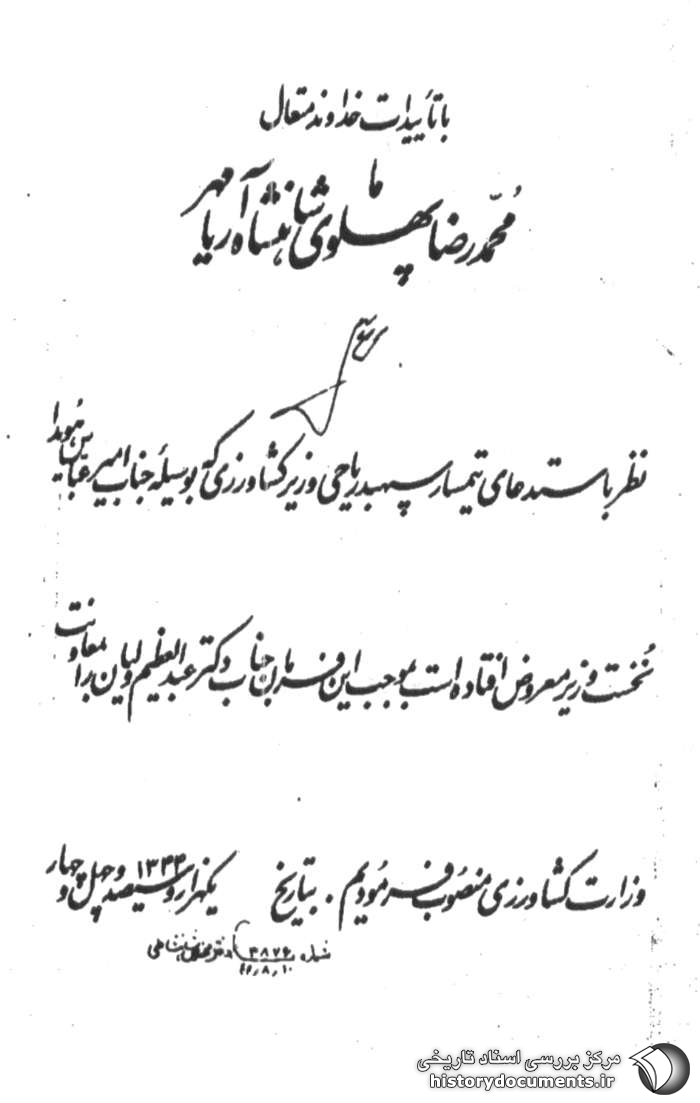 با تأییدات خداوند متعال
ما
محمّد رضا پهلوی شاهنشاه آریامهر
نظر باستدعای تیمسار سپهبد ریاحی وزیر کشاورزی که بوسیلهٔ جناب امیر عباس هویدا
نخست وزیر معروض افتاده است بموجب این فرمان جناب دکتر عبدالعظیم ولیان را بمعاونت
وزارت کشاورزی منصوب فرمودیم. بتاریخ یکهزار و سیصد و چهل و چهار ۱۳۴۴
شماره ۳۸۷۶ دفتر مخصوص شاهنشاهی
۴۴٫۸٫۱۰
مرکز بررسی اسناد تاریخی
historydocuments.ir